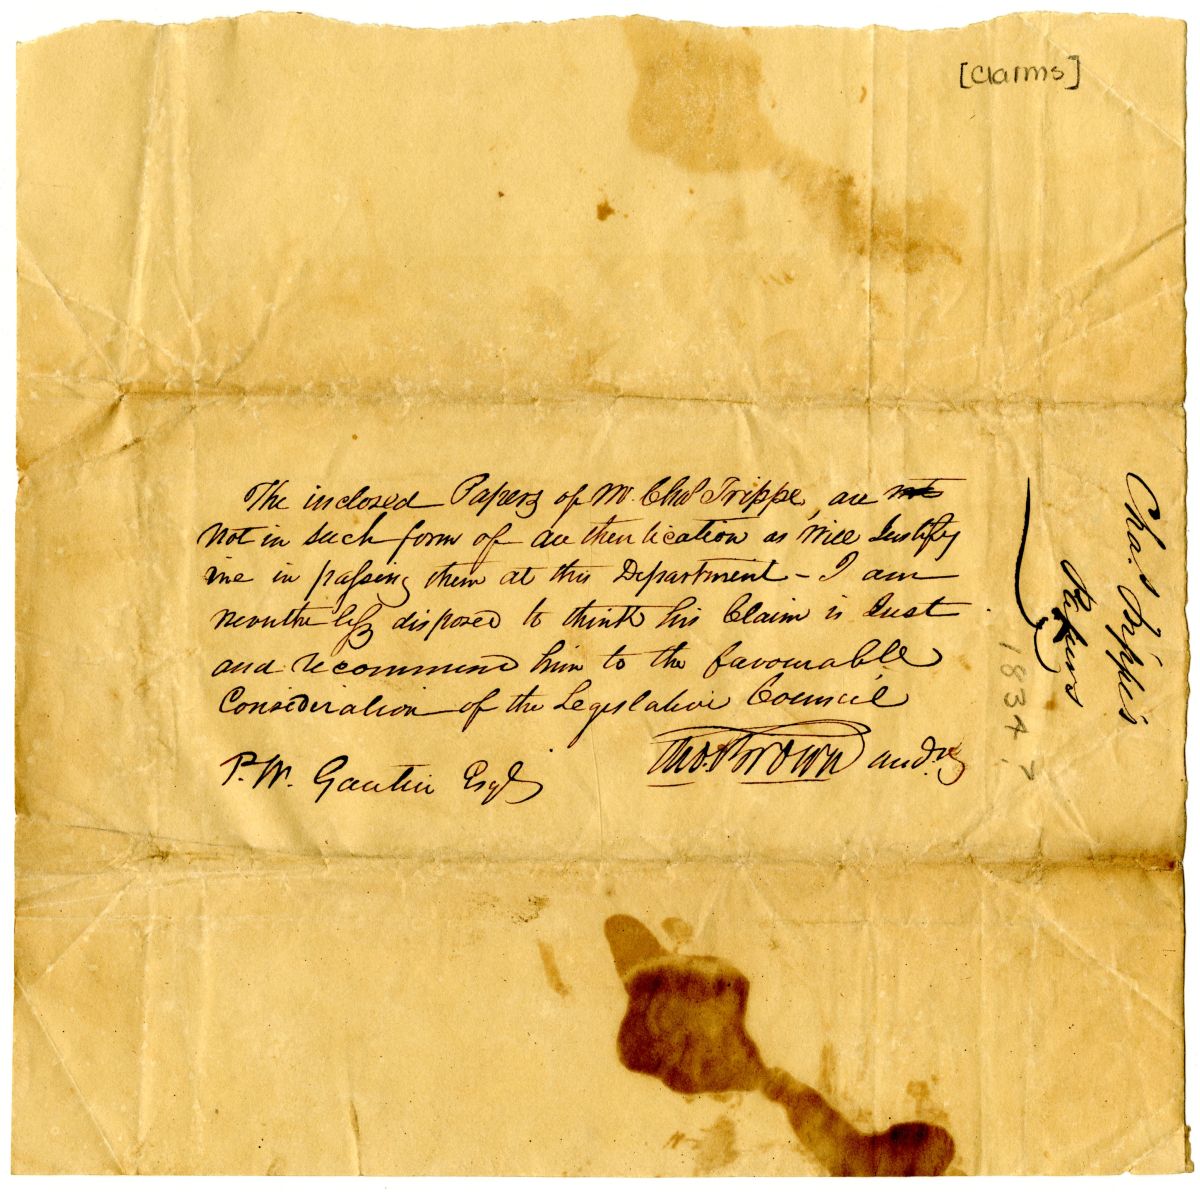 [Claims]
The inclosed Papers of Mr. Chas Trippe, are not
not in such form of authentication as Will Justify
me in passing them at this Department - I am
neverthe less disposed to think his Claim is Just
and recommend him to the favourable
Consideration of the Legislative Council
Tho. Brown aud.
P. W. Gautier Esqr
Chas. Trippe's
1834?